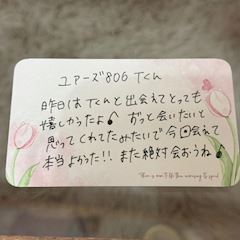 ユアーズ806 Tくん
昨日は Tくんと出会えてとっても
嬉しかったよ♪ ずっと会いたいと
思ってくれてたみたいで今回会えて
本当よかった!! また絶対会おうね♪